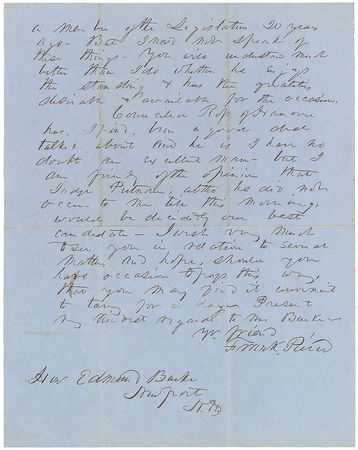 a member of the Legislature 20 years
ago - But I need not speak of
these things - You will understand much
better than I do whether he enjoys
the standing & has the qualities
desirable & available for the occasion.
Councilor Ross of Hanover
has, I find, been a good deal
talked about and he is I have no
doubt an excellent man - but I
am firmly of the opinion that
Judge Putnam, altho he did not
occur to me till this morning,
would be decidedly our best
candidate - I wish very much
to see you in relation to several
matters and hope, should you
have occasion to pass this way,
that you may find it convenient
to tarry for a day. Present
my kindest regards to Mrs Burke
Yr. friend
Frank. Pierce
Hon Edmund Burke
Newport
N.H.